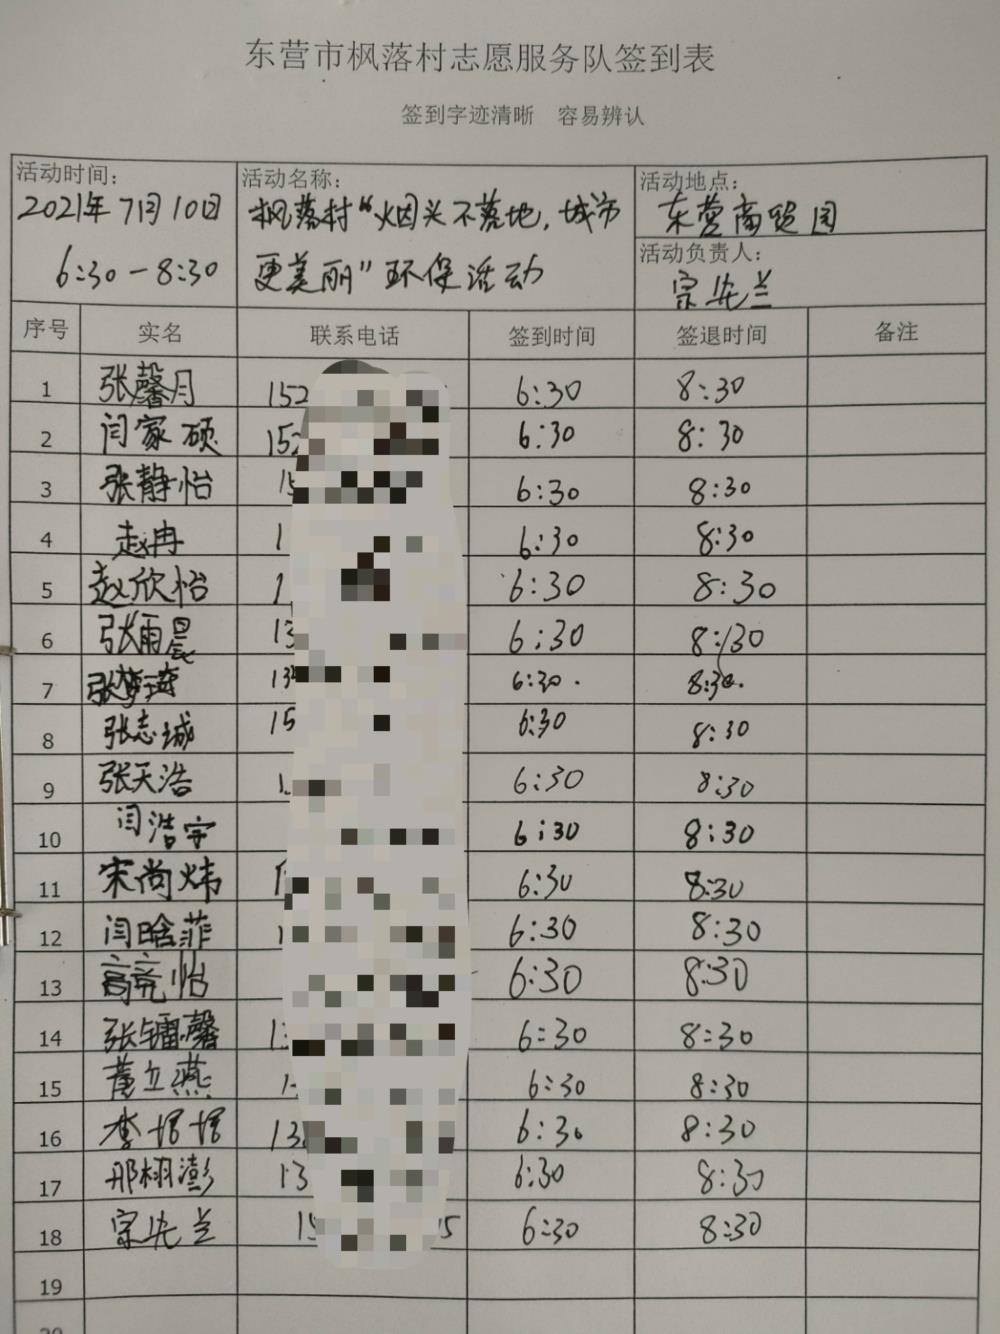 东营市枫落村志愿服务队签到表
签到字迹清晰 容易辨认
活动时间: 活动名称: 活动地点:
2021年7月10日 枫落村“烟头不落地,城市 东营商贸园
6:30-8:30 更美丽”环保活动 活动负责人:
宗先兰
序号 实名 联系电话 签到时间 签退时间 备注
1 张馨月 152 6:30 8:30
2 闫家硕 152 6:30 8:30
3 张静怡 15 6:30 8:30
4 赵冉 1 6:30 8:30
5 赵欣怡 1 6:30 8:30
6 张雨晨 13 6:30 8:30
7 张梦琦 13 6:30. 8:30.
8 张志城 15 6:30 8:30
9 张天浩 1 6:30 8:30
10 闫浩宇 6:30 8:30
11 宋尚炜 1 6:30 8:30
12 闫晗菲 1 6:30 8:30
13 高亮怡 6:30 8:30
14 张镭馨 13 6:30 8:30
15 董立燕 1 6:30 8:30
16 李增增 13 6:30 8:30
17 邢栩澎 13 6:30 8:30
18 宗先兰 15 15 6:30 8:30
19